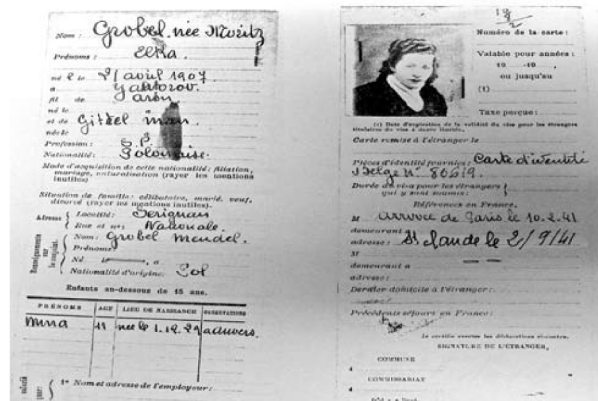 Nom : Grobel née Moritz
Prénoms :
né le 21 avril 1907
a
fil de
né le
et de Gittel man
née le
Profession : S.P.
Nationalité : Polonaise.
Mode d'acquisition de cette nationalité : filiation,
mariage, naturalisation (rayer les mentions
inutiles)
Situation de famille : célibataire, marié, veuf,
divorcé (rayer les mentions inutiles).
Adresse Localité : Serignan
Rue et n° : Nationale.
Renseignements sur le conjoint
Nom : Grobel Mendel.
Prénoms
Né a
Nationalité d'origine : Pol
Enfants au-dessous de 15 ans.
PRÉNOMS AGE LIEU DE NAISSANCE OBSERVATIONS
Mina 11 née le 1.12.29 a anvers.
1° Nom et adresse de l'employeur :
Numéro de la carte :
Valable pour années :
19 -19
ou jusqu'au
(1)
Taxe perçue :
(1) Date d'expiration de la validité du visa pour les étrangers
titulaires du visa a durée limitée.
Carte remise à l'étranger le
Pièces d'identité fournies : Carte d'identité
Belge N° 80619.
Durée du visa pour les étrangers
qui y sont soumis :
Références en France.
M arrivée de Paris le 10.2.41
demeurant a
adresse : St Claude le 2/9/41
M
demeurant a
adresse :
Dernier domicile à l'étranger :
Précédents séjours en France :
Je certifie exactes les déclarations ci-contre.
SIGNATURE DE L'ÉTRANGER,
COMMUNE
COMMISSARIAT